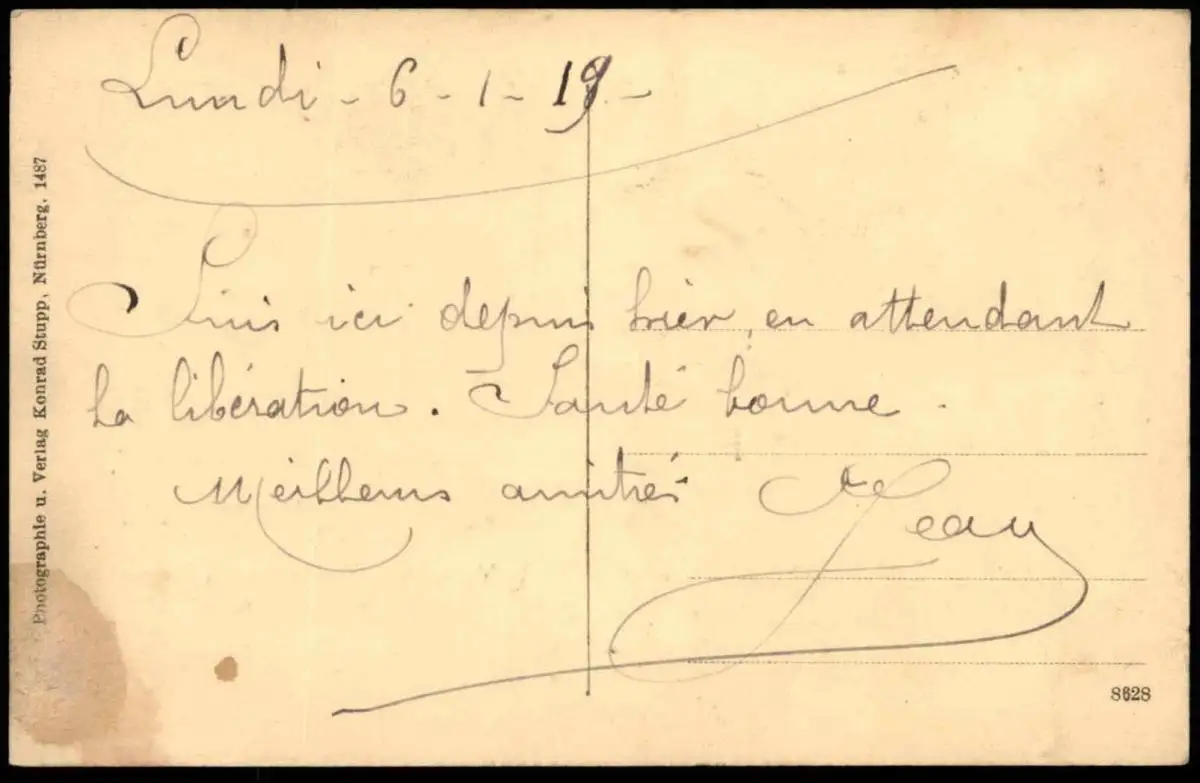 Lundi - 6 - 1 - 19 -
Suis ici depuis hier, en attendant
la libération. Santé bonne.
Meilleurs amitiés Jean
Photographie u. Verlag Konrad Stupp, Nürnberg, 1487
8628